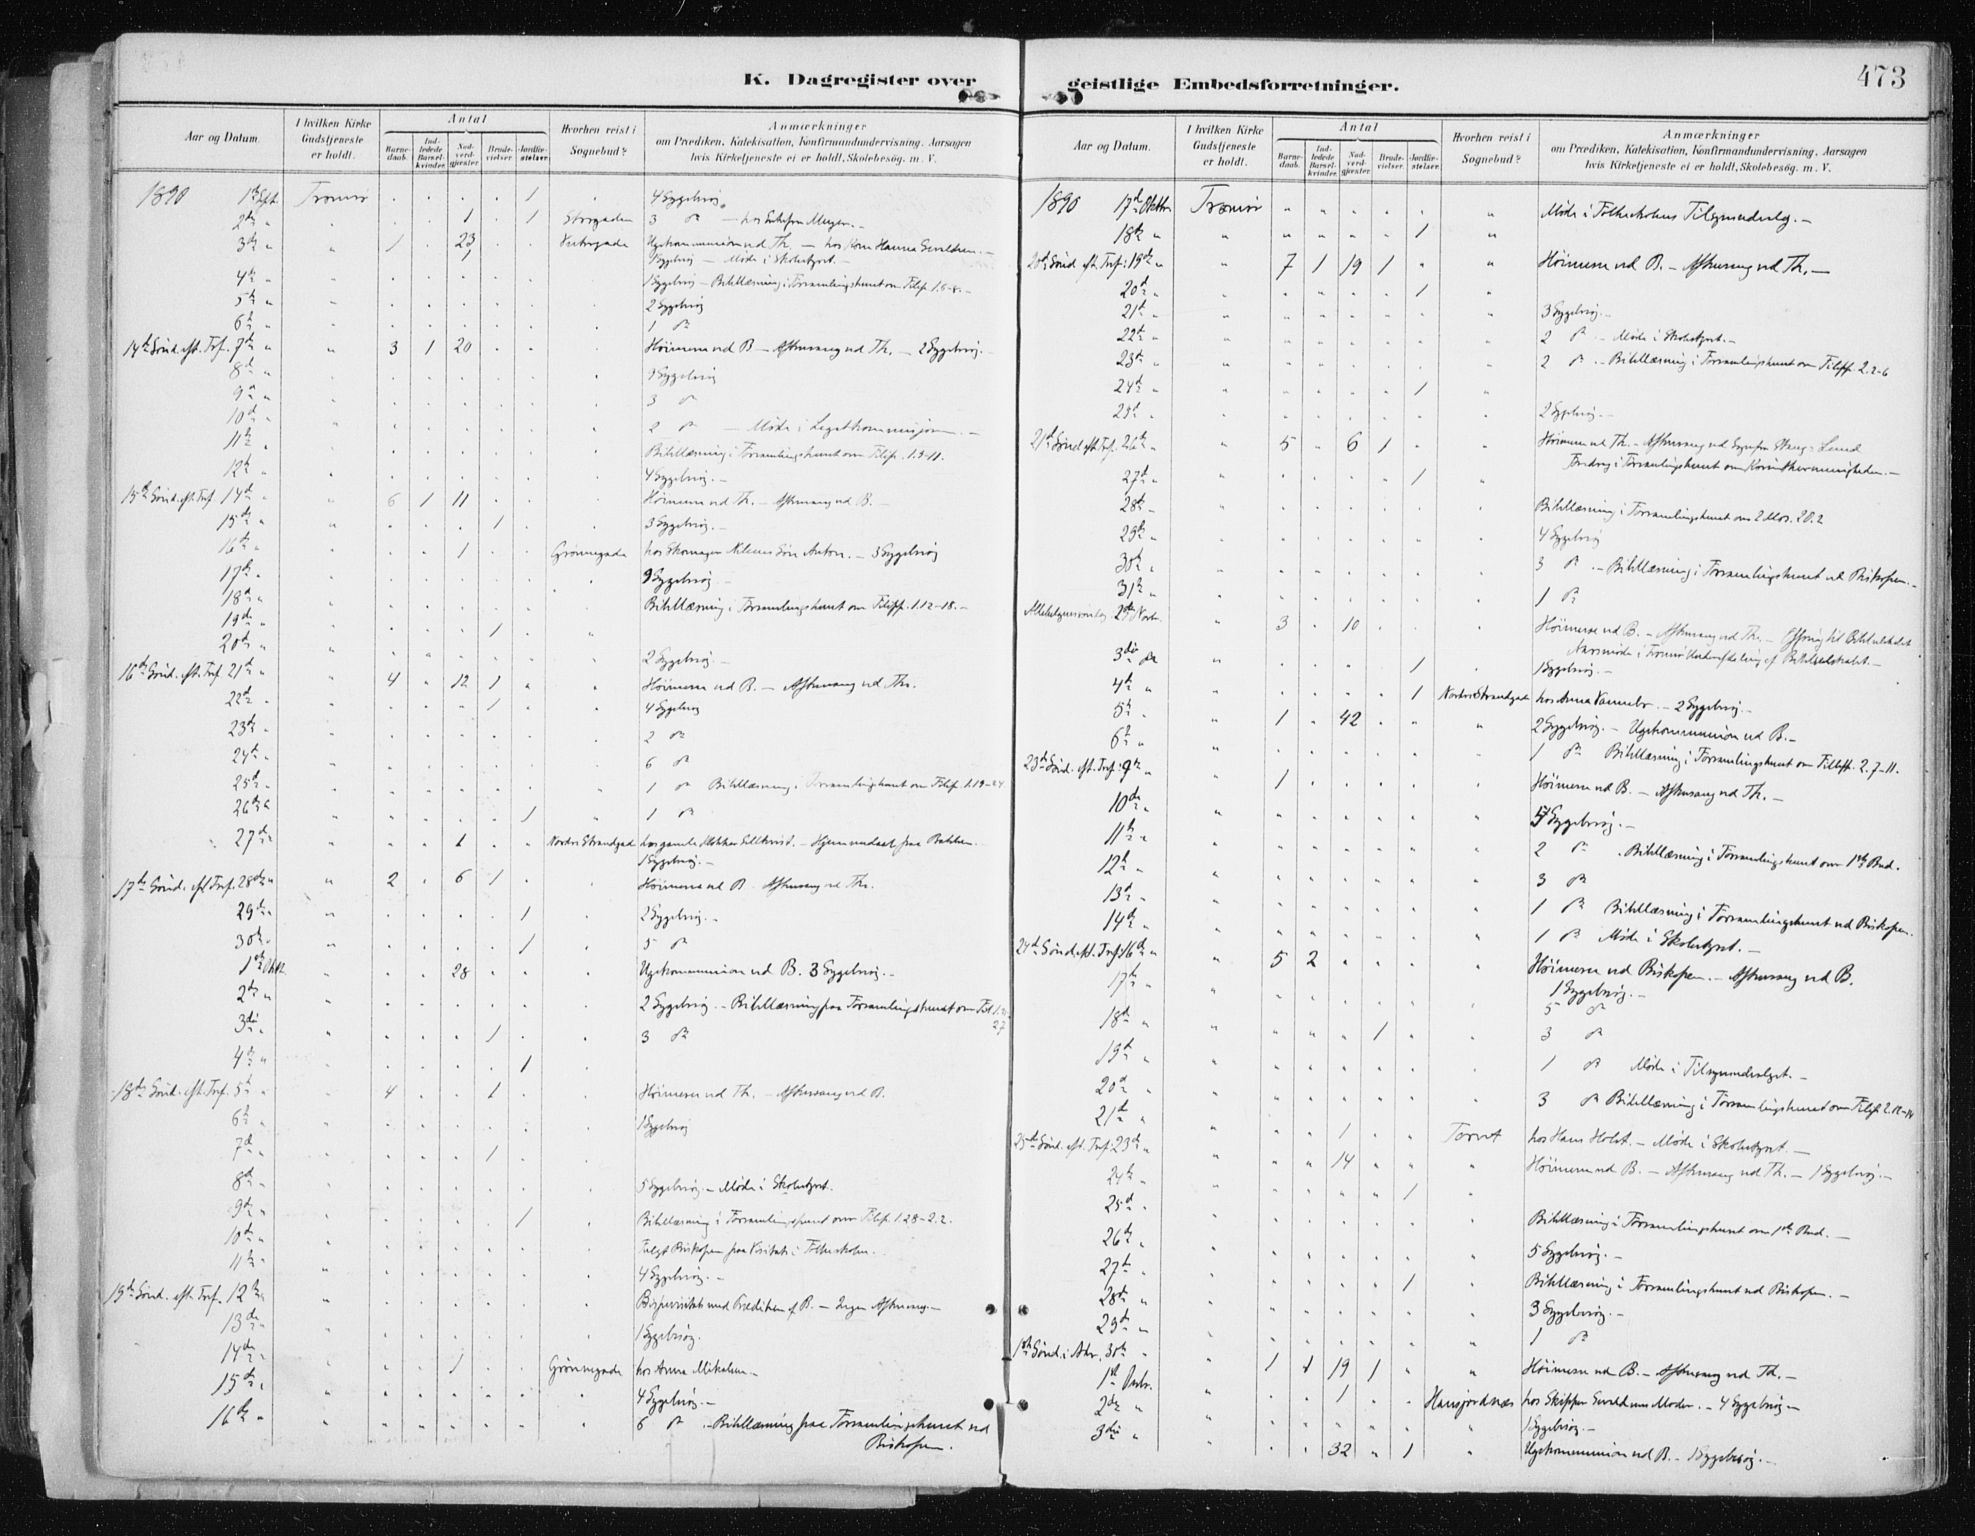 K. Dagregister over geistlige Embedsforretninger.
473
Aar og Datum.
I hvilken Kirke Gudstjeneste er holdt.
Antal
Barne-daab.
Ind-ledede Barsel-kvinder.
Nad-verd-gjester.
Brude-vielser.
Jordfæ-stelser.
Hvorhen reist i Sognebud?
Anmærkninger
om Prædiken, Katekisation, Konfirmandundervisning, Aarsagen
hvis Kirketjeneste ei er holdt, Skolebesøg. m. V.
1890 1ste Sept. Tromsø 1 4 Sygebesøg.
2den 1 1 Storgaden 3 do
3die 1 23 Vestregade Ugekommunion ved Th.
1 Sygebesøg — Møde i Skolestyret. —
4de 1 Sygebesøg — Bibellæsning i Forsamlingshuset om Filip. 1.6-8. —
5te 2 Sygebesøg
6te 1 do
14de Sønd. eft. Tref. 7de 3 1 20 Høimesse ved B — Aftensang ved Th. — 2 Sygebesøg.
8de Sygebesøg
9de 3 do
10de 2 do — Møde i
11te Bibellæsning i Forsamlingshuset om Filip. 1.9-11.
12te 4 Sygebesøg. —
15de Sønd. eft. Tref. 14de 6 1 11 Høimesse ved Th. — Aftensang ved B. —
15de 1 3 Sygebesøg. —
16de 1 Grønnegade hos Skomager Nilsens Søn Anton. — 3 Sygebesøg
17de 9 Sygebesøg —
18de Bibellæsning i Forsamlingshuset om Filipp. 1.12-18. —
19de 1
20de 2 Sygebesøg. —
16de Sønd. eft. Tref. 21de 4 12 1 Høimesse ved B. — Aftensang ved Th.
22de 1 4 Sygebesøg
23de 2 do
24de 6 do
25de 1 do Bibellæsning i Forsamlingshuset om Filip. 1.19-24
26de 1 1 do
27de 1 Nordre Strandgad hos gamle
1 Sygebesøg. —
17de Sønd. eft. Tref. 28de 2 6 1 Høimesse ved B. Aftensang ved Th.
29de 1 2 Sygebesøg. —
30te 1 5 do
1ste Oktb. 28 Ugekommunion ved B. 3 Sygebesøg. —
2den 2 Sygebesøg. — Bibellæsning paa Forsamlingshuset om Fil. 1.
27
3die 1 3 do
4de 1
18de Sønd. eft. Tref. 5te 4 1 Høimesse ved Th. — Aftensang ved B.
6te 1 Sygebesøg
7de 1
8de 5 Sygebesøg. — Møde i Skolestyret.
9de 1 Bibellæsning i Forsamlingshuset om Filip. 1.28-2.2.
10de Fulgt Biskopen paa Visitats i Folkeskolen.
11te 4 Sygebesøg. —
19de Sønd. eft. Tref. 12te Bispevisitats med Prædiken af B. — Ingen Aftensang. —
13de 1 Sygebesøg.
14de 1 Grønnegade hos Anna Mikalsen —
15de 4 Sygebesøg. —
16de 6 do — Bibellæsning paa Forsamlingshuset ved
Biskopen.
Aar og Datum.
I hvilken Kirke Gudstjeneste er holdt.
Antal
Barne-daab.
Ind-ledede Barsel-kvinder.
Nad-verd-gjester.
Brude-vielser.
Jordfæ-stelser.
Hvorhen reist i Sognebud?
Anmærkninger
om Prædiken, Katekisation, Konfirmandundervisning, Aarsagen
hvis Kirketjeneste ei er holdt, Skolebesøg. m. V.
1890 17de Oktbr. Tromsø Møde i Folkeskolens Tilsynsudvalg. —
18de 1
20de Sønd. eft. Tref. 19de 7 1 19 1 Høimesse ved B. — Aftensang ved Th. —
20de 1
21de 3 Sygebesøg. —
22de 2 do — Møde i Skolestyret. —
23de 2 do — Bibellæsning i Forsamlingshuset om Filipp. 2.2-6
24de 1
25de 2 Sygebesøg. —
21de Sønd. eft. Tref. 26de 5 6 1 Høimesse ved Th. — Aftensang ved
Foredrag i Forsamlingshuset om
27de 1
28de Bibellæsning i Forsamlingshuset om 2 Mos. 20.2
29de 4 Sygebesøg
30te 3 do — Bibellæsning i Forsamlingshuset ved Biskopen. —
31te 1 do
Allehelgenssøndag. 2den Novbr. 3 10 Høimesse ved B. — Aftensang ved Th. —
3die 1 1 Sygebesøg. —
4de 1 Nordre Strandgade hos Anna — 2 Sygebesøg. —
5te 1 42 2 Sygebesøg. — Ugekommunion ved B. —
6te 1 do Bibellæsning i Forsamlingshuset om Filipp. 2.7-11.
23de Sønd. eft. Tref. 9de 1 Høimesse ved B. — Aftensang ved Th. —
10de Sygebesøg. —
11te 2 do Bibellæsning i Forsamlingshuset om 1ste Bud.
12te 3 do
13de 1 do Bibellæsning i Forsamlingshuset ved Biskopen.
14de 1 do Møde i Skolestyret. —
24de Sønd. eft. Tref. 16de 5 2 Høimesse ved Biskopen. — Aftensang ved B.
17de 1 Sygebesøg. —
5 do
18de 1 3 do
19de 1 do Møde i Tilsynsudvalget. —
20de 3 do Bibellæsning i Forsamlingshuset om Filip. 2.12-14
21de 1 Torvet hos Hans Holst. — Møde i Skolestyret. —
25de Sønd. eft. Tref. 23de 14 Høimesse ved B. — Aftensang ved Th. — 1 Sygebesøg. —
24de 1
25de Bibellæsning i Forsamlingshuset om 1ste Bud. —
26de 5 Sygebesøg. —
27de 1 Bibellæsning i Forsamlingshuset ved Biskopen. —
28de 3 Sygebesøg. —
29de 1 do
1ste Sønd. i Adv. 30te 1 1 19 1 Høimesse ved B. — Aftensang ved Th. —
1ste Decbr. 1 Hansjordnæs hos Skipper Moder. — 4 Sygebesøg —
2den 1 Sygebesøg. —
3die 32 1 Ugekommunion ved B. — 1 Sygebesøg. —